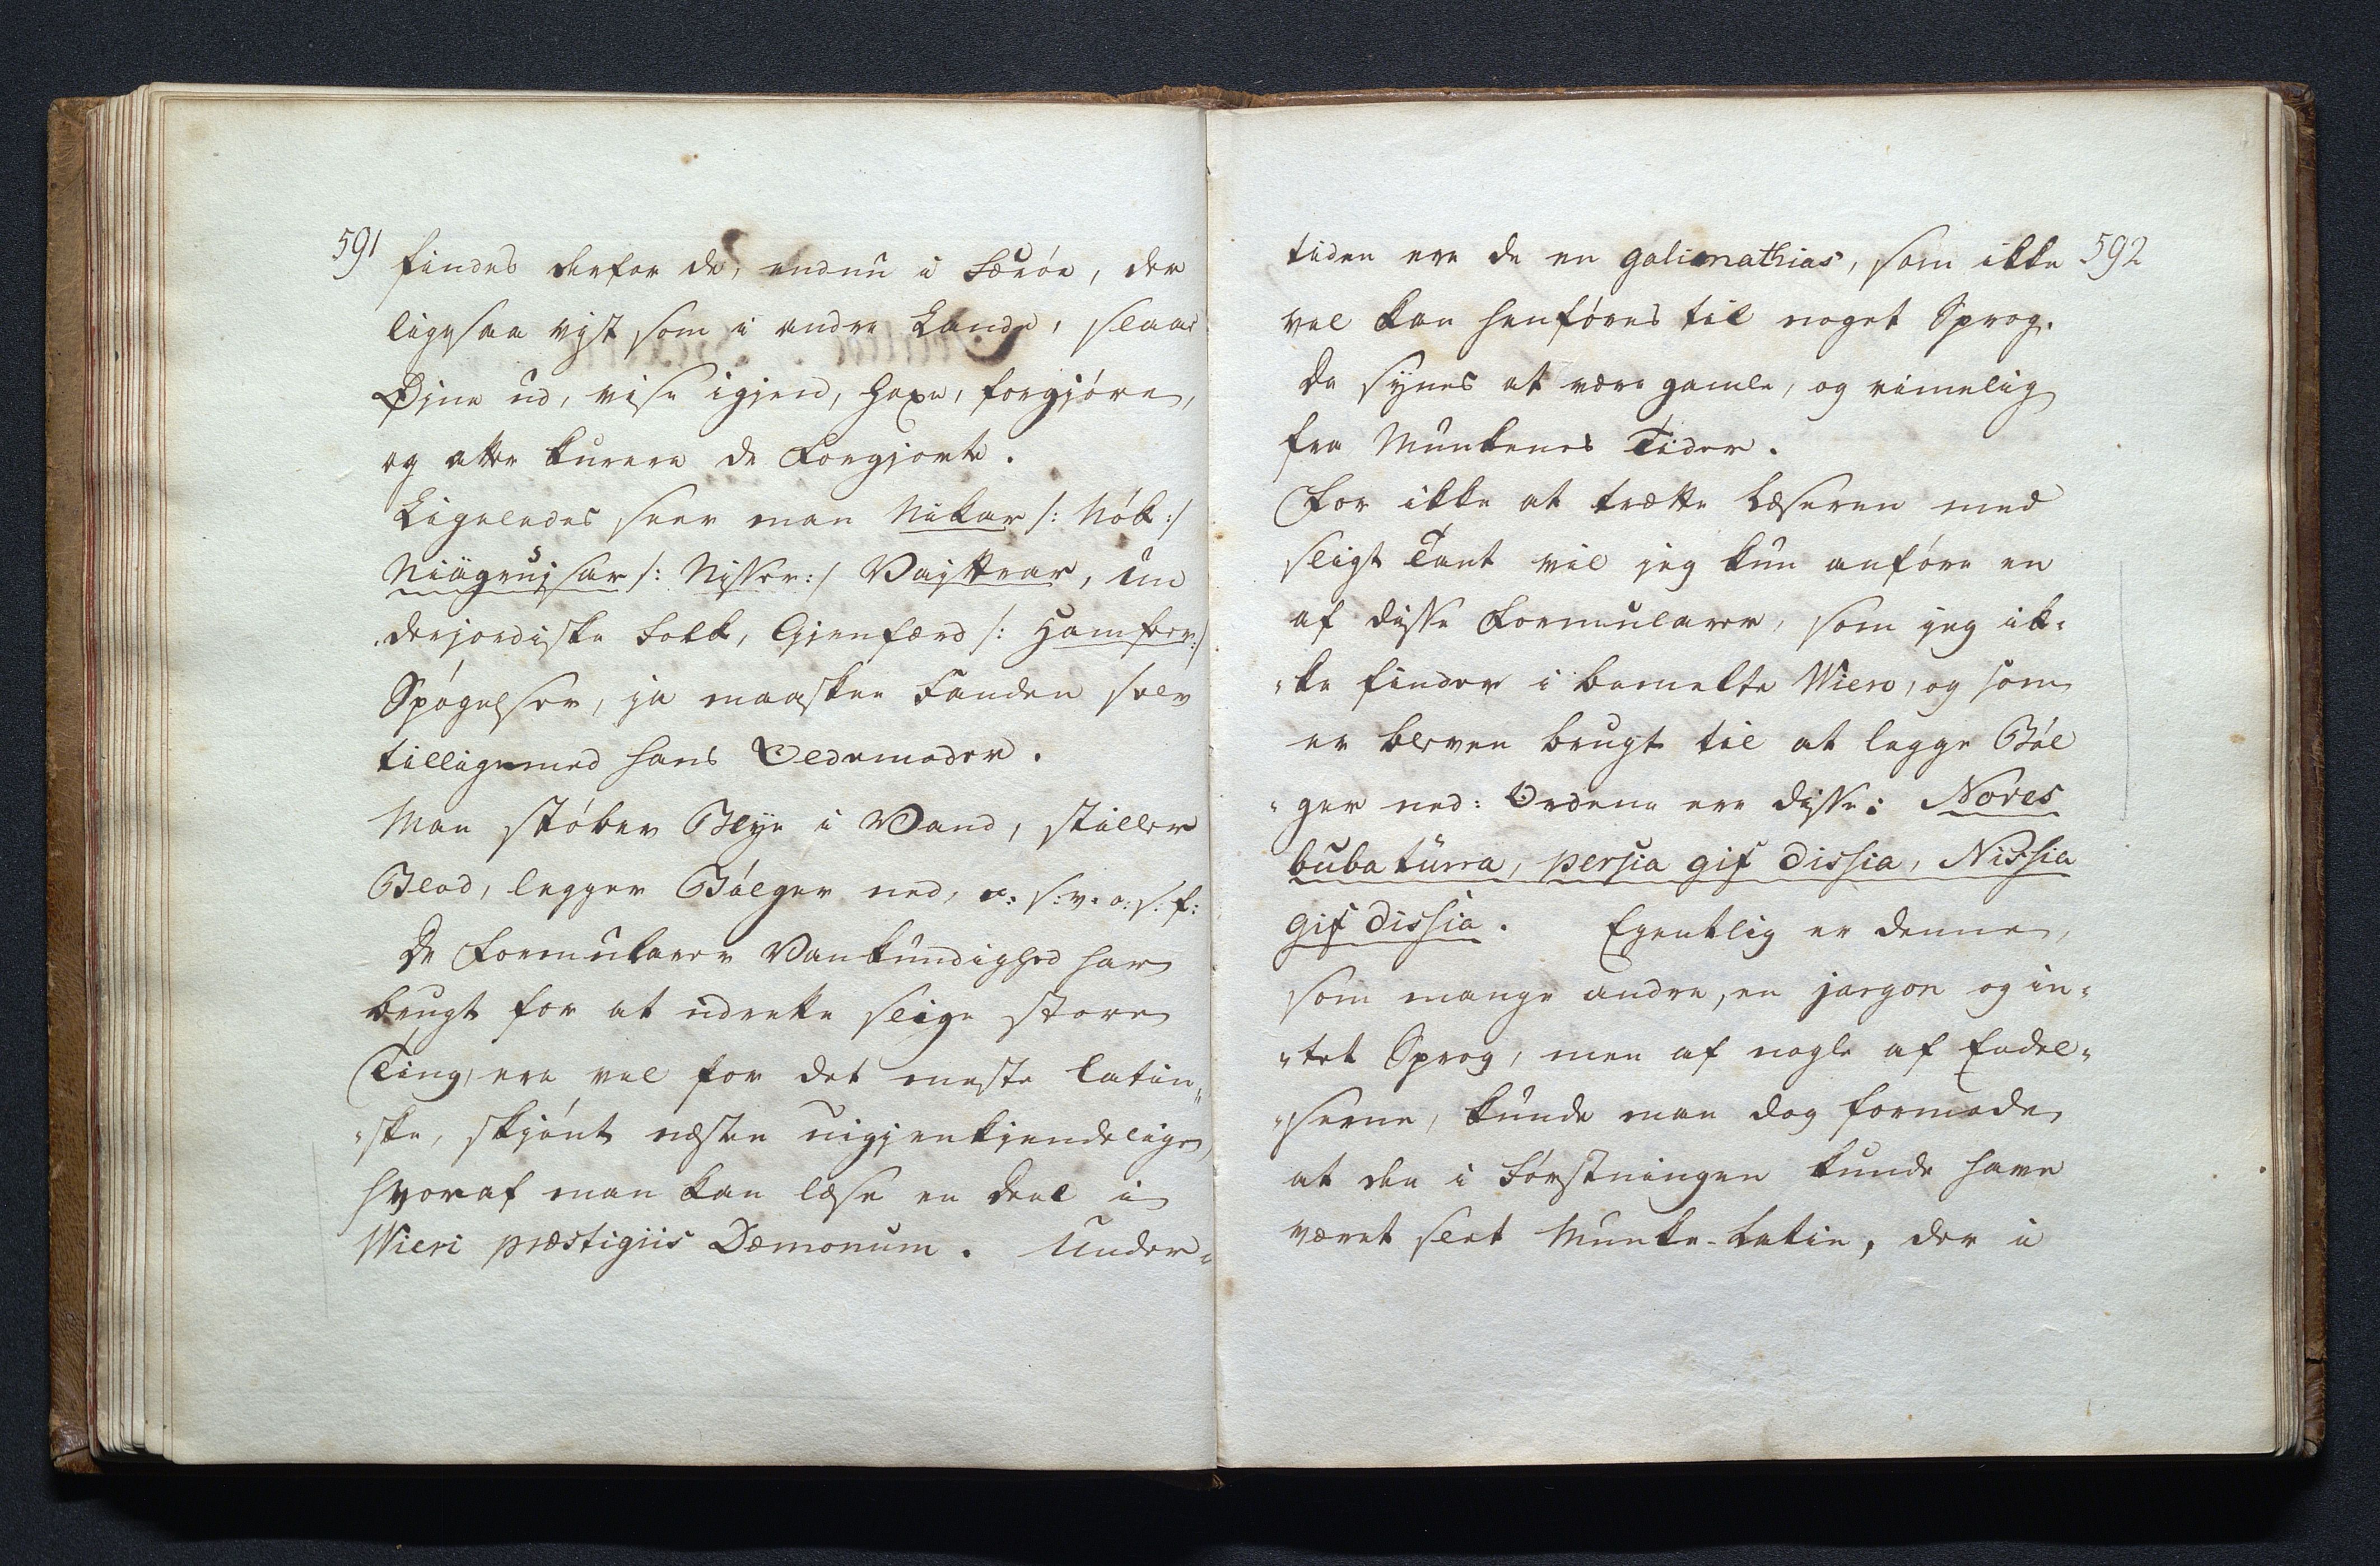 591
findes derfor de, endnu i Færöe, der
ligesaa vist som i andre Lande, slaae
Øjne ud, vise igjen, hexe, forgjöre,
og atter kurere de Forgjorte.
Ligeledes seer man Nikar /: Nök :/
Niägrujsar /: Nisser :/ Vajttrar, un
derjordiske Folk, Gjenfærd /: Hamfer :/
Spögelser, ja maaskee Fanden selv
tilligemed hans Oldemoder.
Man stöber Blye i Vand, stiller
Blod, legger Bölger ned, o: s: v: o: s: f:
De Formularer Vankundighed har
brugt for at udrette slige store
Ting, ere vel for det meste latin„
„ske, skjönt næsten uigjenkjendelige,
hvoraf man kan læse en Deel i
Wieri præstigiis Dæmonum. Under„
592
tiden ere de en galimathias, som ikke
vel kan henföres til noget Sprog.
De synes at være gamle, og rimelig
fra Munkenes Tider.
For ikke at trætte Læseren med
sligt Tant vil jeg kun anföre en
af disse Formularer, som jeg ik„
„ke finder i bemelte Wiero, og som
er bleven brugt til at leggeBöl
„ger ned: Ordene ere disse: Nores
buba türra, persia gif dissia, Nissia
gif dissia. Egentlig er denne,
som mange andre, en jargon og in„
„tet Sprog, men af nogle af Endel„
„serne, kunde man dog formode
at den i Förstningen kunde have
været slet Munke-Latin, der i